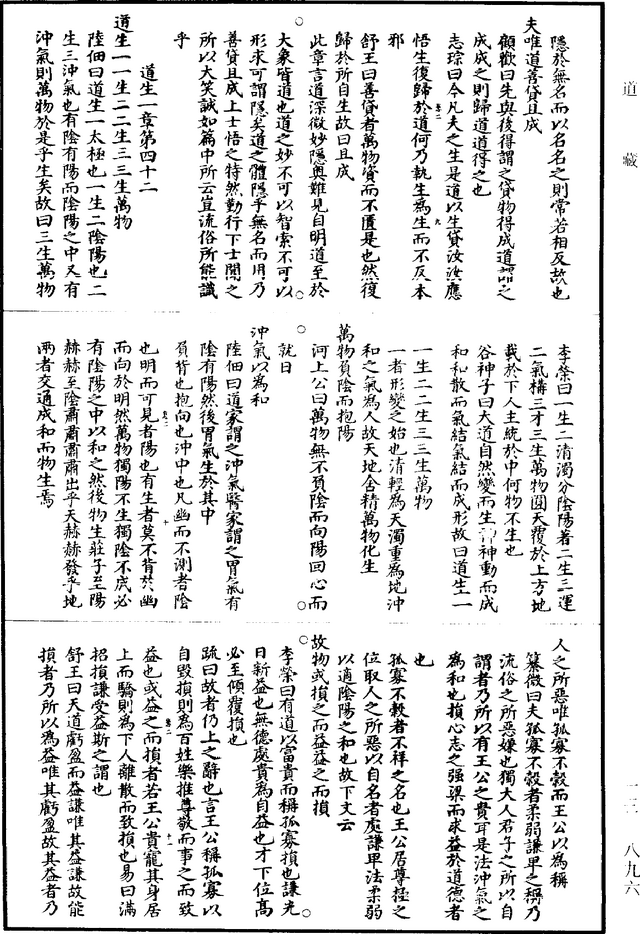 道藏
隱於無名而以名名之則常若相反故也
夫唯道善貸且成
顧歡曰先與後得謂之貸物得成道謂之
成成之則歸道道得之也
志琮曰今凡夫之生是道以生貸汝汝應
悟生復歸於道何乃執生為生而不反本
邪
舒王曰善貸者萬物資而不匱是也然復
歸於所自生故曰且成
此章言道深微妙隱奧難見自明道至於
大象皆道也道之妙不可以智索不可以
形求可謂隱矣道之體隱乎無名而用乃
善貸且成上士悟之特然勤行下士聞之
所以大笑誠如篇中所云豈流俗所能識
乎
道生一章第四十二
道生一一生二二生三三生萬物
陸佃曰道生一太極也一生二陰陽也二
生三沖氣也有陰有陽而陰陽之中又有
沖氣則萬物於是乎生矣故曰三生萬物
李榮曰一生二清濁分陰陽著二生三運
二氣構三才三生萬物圓天覆於上方地
載於下人主統於中何物不生也
谷神子曰大道自然變而生神神動而成
和和散而氣結氣結而成形故曰道生一
一生二二生三三生萬物
一者形變之始也清輕為天濁重為地沖
和之氣為人故天地含精萬物化生
萬物負陰而抱陽
河上公曰萬物無不負陰而向陽回心而
就日
沖氣以為和
陸佃曰道家謂之沖氣醫家謂之胃氣有
陰有陽然後胃氣生於其中
負背也抱向也沖中也凡幽而不測者陰
也明而可見者陽也有生者莫不背於幽
而向於明然萬物獨陽不生獨陰不成必
有陰陽之中以和之然後物生莊子至陽
赫赫至陰肅肅肅肅出乎天赫赫發乎地
兩者交通成和而物生焉
人之所惡唯孤寡不穀而王公以為稱
纂微曰夫孤寡不穀者柔弱謙卑之稱乃
流俗之所惡嫌也獨大人君子之所以自
謂者乃所以有王公之貴耳是法沖氣之
為和也損心志之强梁而求益於道德者
也
孤寡不穀者不祥之名也王公居尊極之
位取人之所惡以自名者處謙卑法柔弱
以適陰陽之和也故下文云
故物或損之而益益之而損
李榮曰有道以富貴而稱孤寡損也謙光
日新益也無德處貴為自益也才下位高
必至傾覆損也
疏曰故者仍上之辭也言王公稱孤寡以
自毀損則為百姓樂推尊敬而事之而致
益也或益之而損者若王公貴寵其身居
上而驕則為下人離散而致損也易曰滿
招損謙受益斯之謂也
舒王曰天道虧盈而益謙唯其益謙故能
損者乃所以為益唯其虧盈故其益者乃
一三　八九六